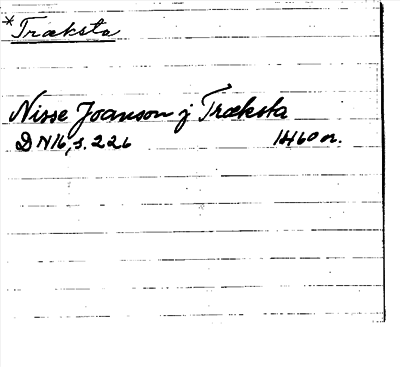 *Træksta
Nisse Joanson j Træksta
DN16, s. 226 1460 n.